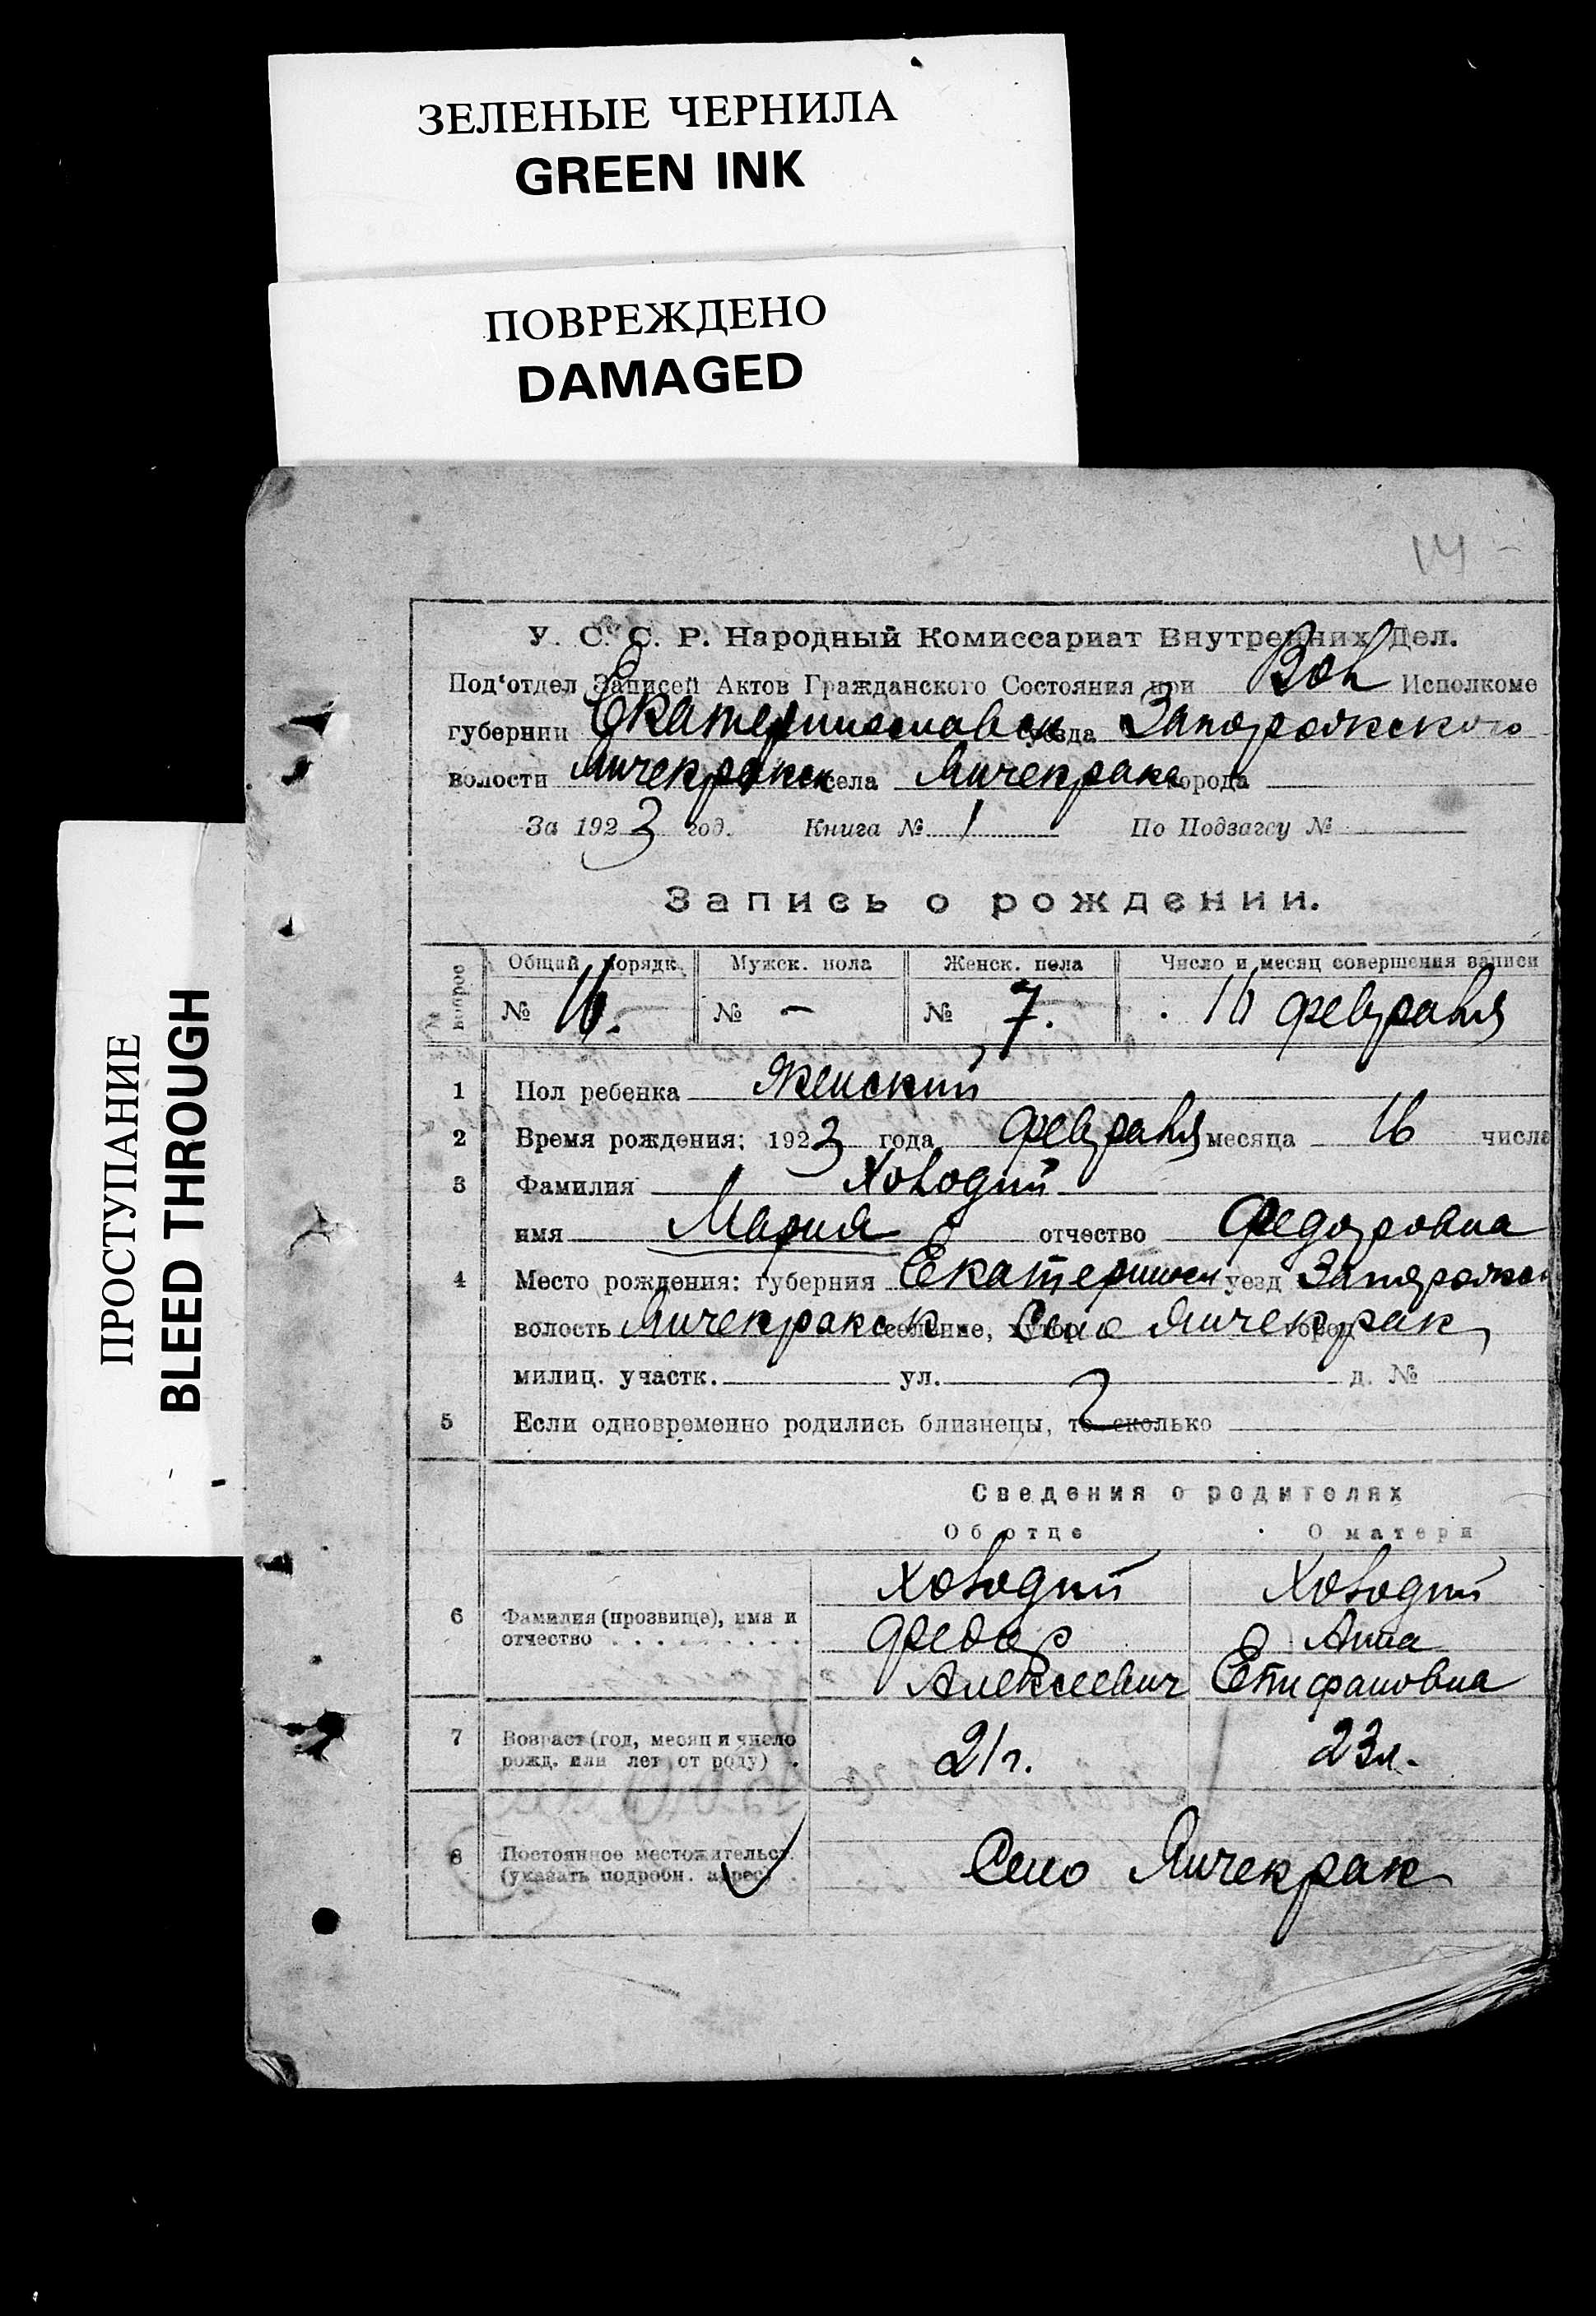 ЗЕЛЕНЫЕ ЧЕРНИЛА
GREEN INK
ПОВРЕЖДЕНО
DAMAGED
ПРОСТУПАНИЕ
BLEED THROUGH
14
У. С. С. Р. Народный Комиссариат Внутренних Дел.
Под'отдел Записей Актов Гражданского Состояния при Вол Исполкоме
губернии Екатеринославск уезда Запорожского
волости Янчекракск села Янчекрака города
За 1923 год. Книга № 1 По Подзагсу №
Запись о рождении.
№ вопрос Общий порядк. Мужск. пола Женск. пола Число и месяц совершения записи
№ 16. № — № 7. 16 февраля
1 Пол ребенка Женский
2 Время рождения: 1923 года февраля месяца 16 числа
3 Фамилия Холодий
имя Мария отчество Федоровна
4 Место рождения: губерния Екатериносл уезд Запорожск
волость Янчекракск. селение, хутор Село Янчекрак город
милиц. участк. ул. д. №
5 Если одновременно родились близнецы, то сколько
Сведения о родителях
Об отце О матери
6 Фамилия (прозвище), имя и отчество
Холодий Холодий
Федор Анна
Алексеевич Епифановна
7 Возраст (год, месяц и число
рожд. или лет от роду) 21 г. 23 л.
8 Постоянное местожительст.
(указать подробн. адрес) Село Янчекрак